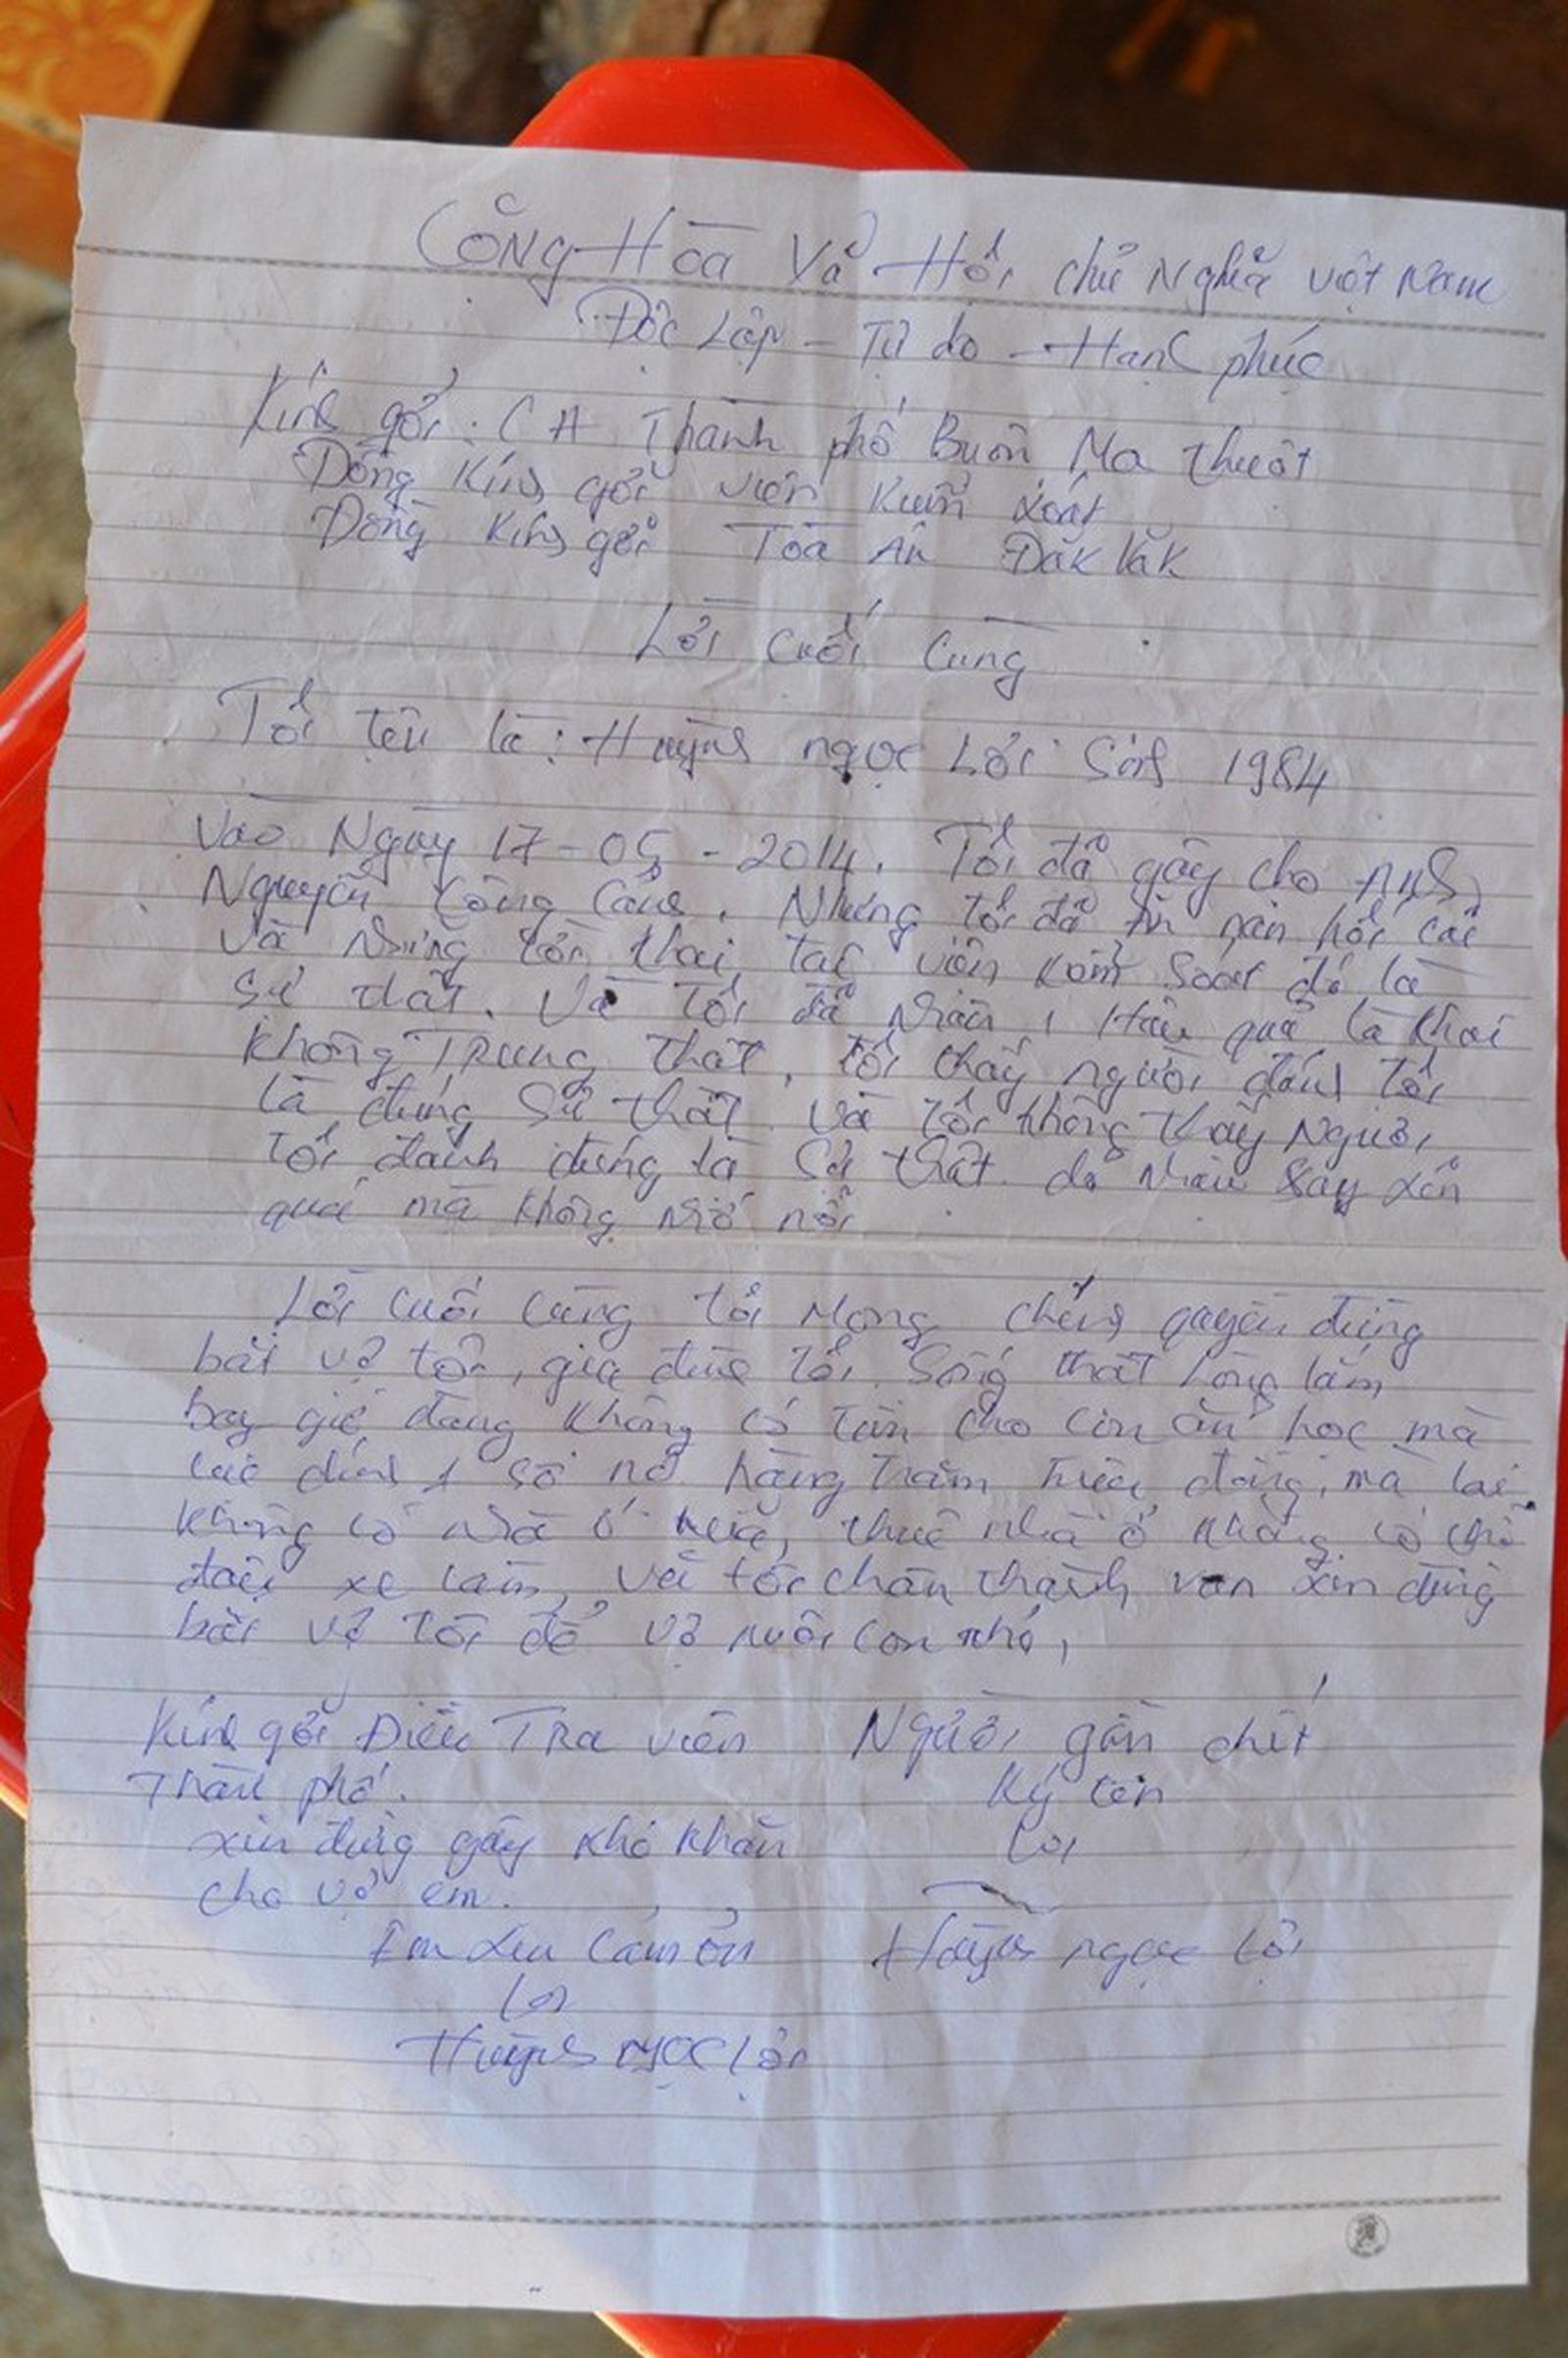 Cộng Hòa Xã Hội chủ Nghĩa việt Nam
Độc Lập - Tự do - Hạnh phúc
Kính gởi: CA Thành phố Buôn Ma thuột
Đồng Kính gởi viện Kiểm xoát
Đồng Kính gởi Tòa Án Đăk lăk
Lời Cuối Cùng
Tôi tên là: Huỳnh ngọc Lợi Sinh 1984
Vào Ngày 17-05-2014. Tôi đã gây cho Anh
Nguyễn Công Cảnh. Nhưng tôi đã ăn năn hối cải
Và Những lời khai tại viện kiểm Soát đó là
Sự thật. Và Tôi đã Nhận 1 Hậu quả là khai
không TRung thật, tôi thấy người đánh tôi
là đúng Sự thật và tôi không thấy Người
tôi đánh đúng là Sự thật do Nhậu Say xỉn
quá mà không nhớ nổi
Lời Cuối Cùng tôi Mong chính quyền đừng
bắt vợ tôi, gia đình tôi Sống thật lòng lắm
bay giờ đang không có tiền cho con ăn học mà
còn dính 1 số nợ hàng trăm triệu đồng, mà lại
không có nhà ở nữa, thuê nhà ở không có chỗ
đậu xe lam, và tôi chân thành van xin đừng
bắt vợ tôi để vợ nuôi con nhỏ,
Kính gởi Điều TRa viên
Thành phố.
xin đừng gây khó khăn
cho vợ em.
Em xin Cảm ơn
Lợi
Huỳnh ngọc Lợi
Người gần chết
Ký tên
Lợi
Huỳnh ngọc Lợi